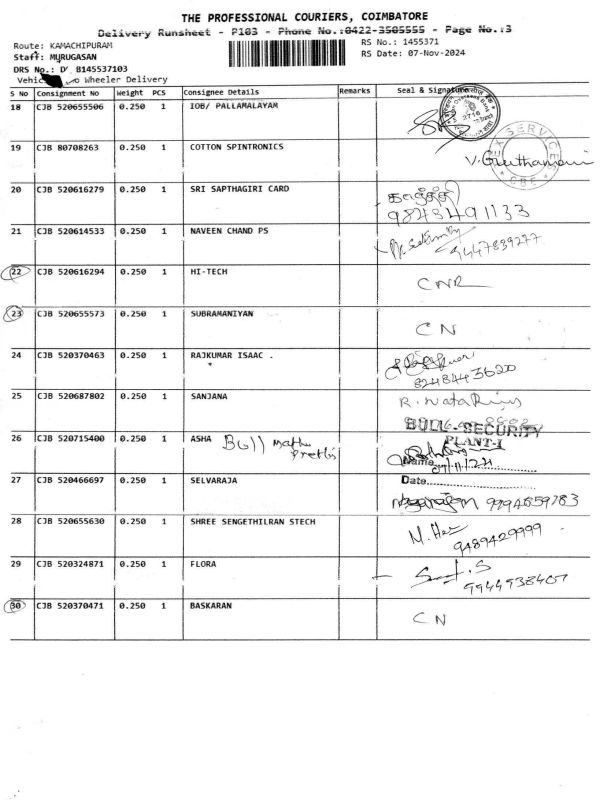 THE PROFESSIONAL COURIERS, COIMBATORE
Delivery Runsheet - P103 - Phone No.:0422-3505555 - Page No.:3
Route: KAMACHIPURAM
RS No.: 1455371
Staff: MURUGASAN
RS Date: 07-Nov-2024
DRS No.: D B145537103
Wheeler Delivery
S No Consignment No Weight PCS Consignee Details Remarks Seal & Signature
18 CJB 520655506 0.250 1 IOB/ PALLAMALAYAM
19 CJB 80708263 0.250 1 COTTON SPINTRONICS
20 CJB 520616279 0.250 1 SRI SAPTHAGIRI CARD
9843491133
21 CJB 520614533 0.250 1 NAVEEN CHAND PS
9447839277
22 CJB 520616294 0.250 1 HI-TECH CNR
23 CJB 520655573 0.250 1 SUBRAMANIYAN CN
24 CJB 520370463 0.250 1 RAJKUMAR ISAAC .
25 CJB 520687802 0.250 1 SANJANA
BULL SECURITY
PLANT-I
26 CJB 520715400 0.250 1 ASHA Bull
Name
Date
27 CJB 520466697 0.250 1 SELVARAJA
28 CJB 520655630 0.250 1 SHREE SENGETHILRAN STECH
9489429999
29 CJB 520324871 0.250 1 FLORA
9944938407
30 CJB 520370471 0.250 1 BASKARAN CN